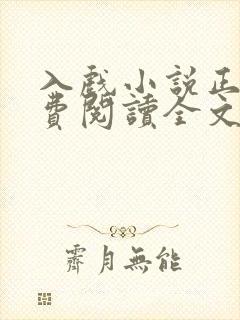 入戲小說正
費閱讀全文
霽月無能